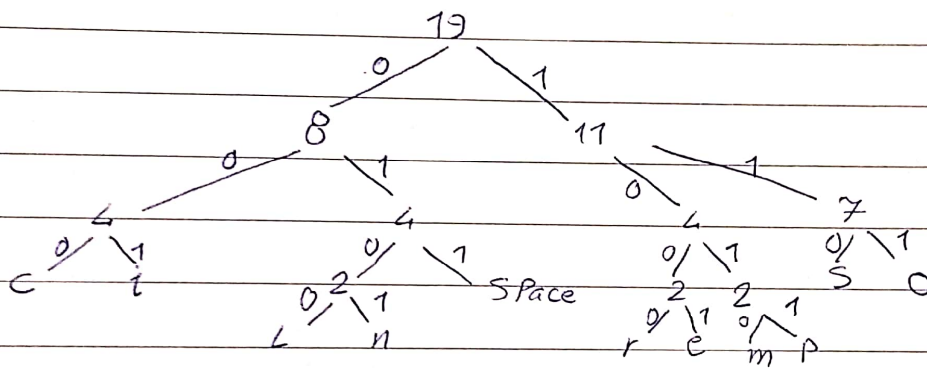 19
0 1
8 11
0 1 0 1
4 4 4 7
0 1 0 1 0 1 0 1
C i 2 SPace 2 2 S O
0 1 0 1 0 1
L n r e m p